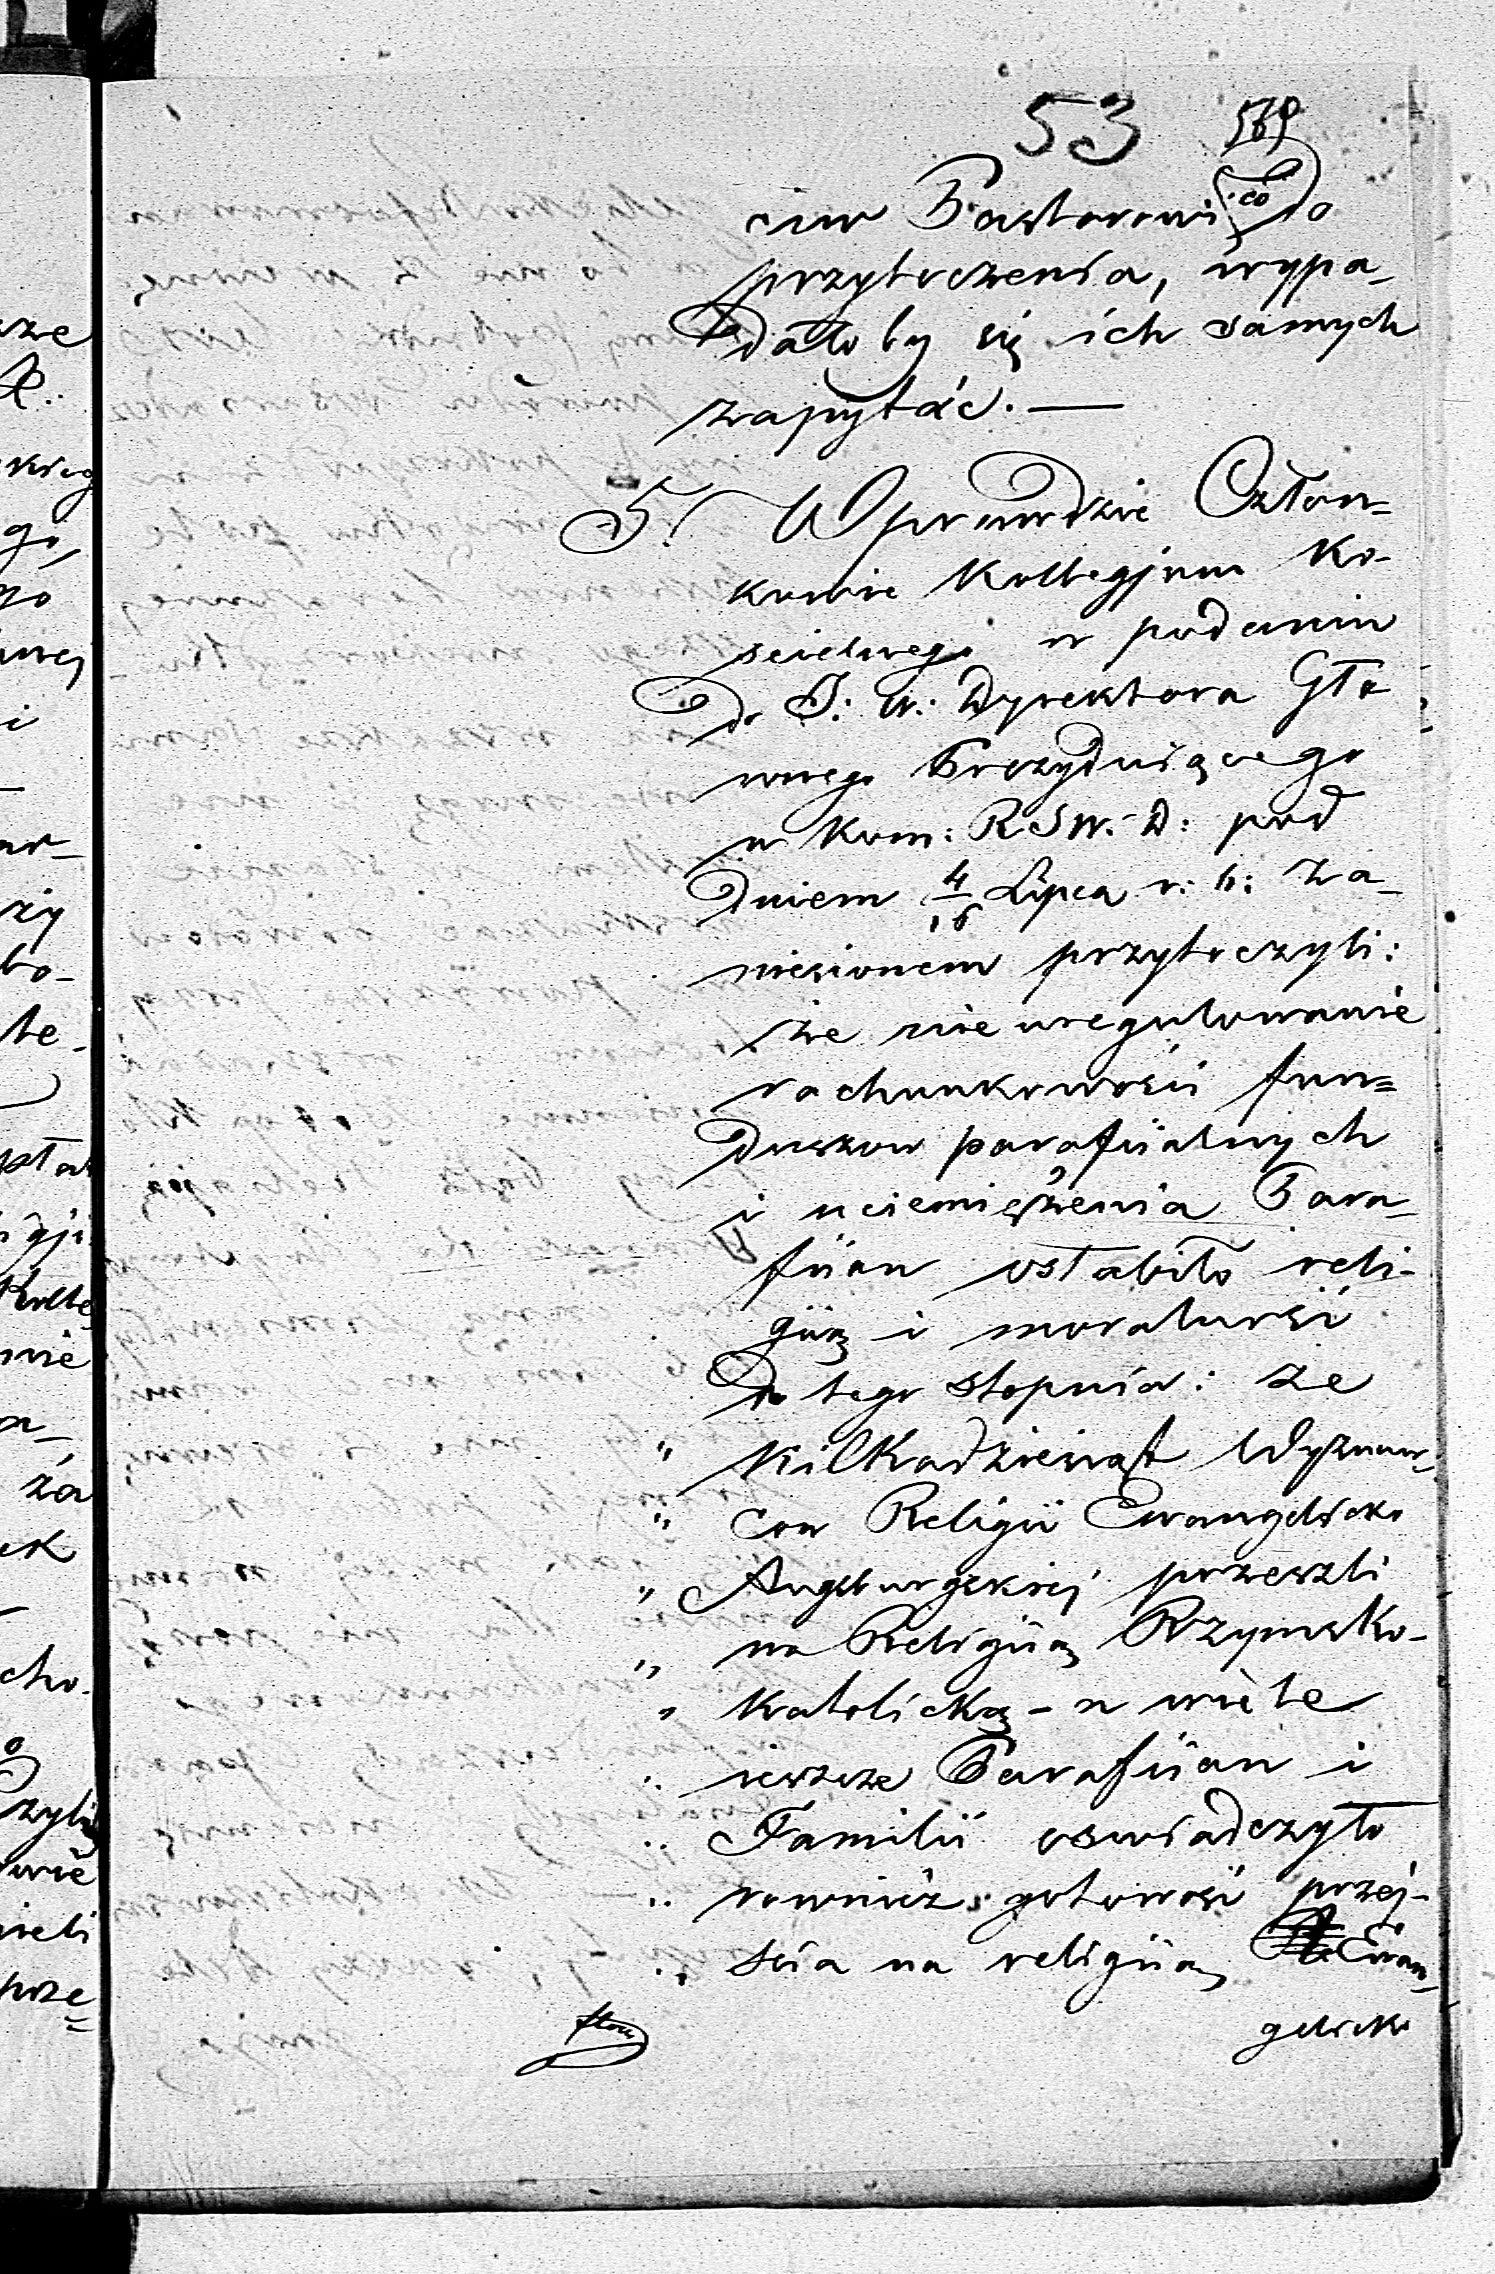 53 569
ciw Pastorowi co do
przytoczenia, wypa-
dało by się ich samych
zapytać. —
5. Wprawdzie Człon-
kowie Kollegjum Ko-
scielnego w podaniu
do J: W: Dyrektora Głó
wnego Prezydującego
w Kom: R S W. D: pod
Dniem 4/16 Lipca r: b: za-
niesionem przytoczyli:
że nie uregulowanie
rachunkowości fun=
duszow parafiialnych
i uciemiężenia Para-
fiian osłabiło reli-
giią i moralność
do tego stopnia: że
" kilkadziesiąt Wyznaw-
" cow Religii Ewangelicko
" Augsburgskiej przeszli
" na Religiią Rzymsko-
" katolicką - a wiele
" ieszcze Parafiian i
" Familii oswiadczyło
" rownież gotowość przej-
" scia na religiią Ewan-
gelicko